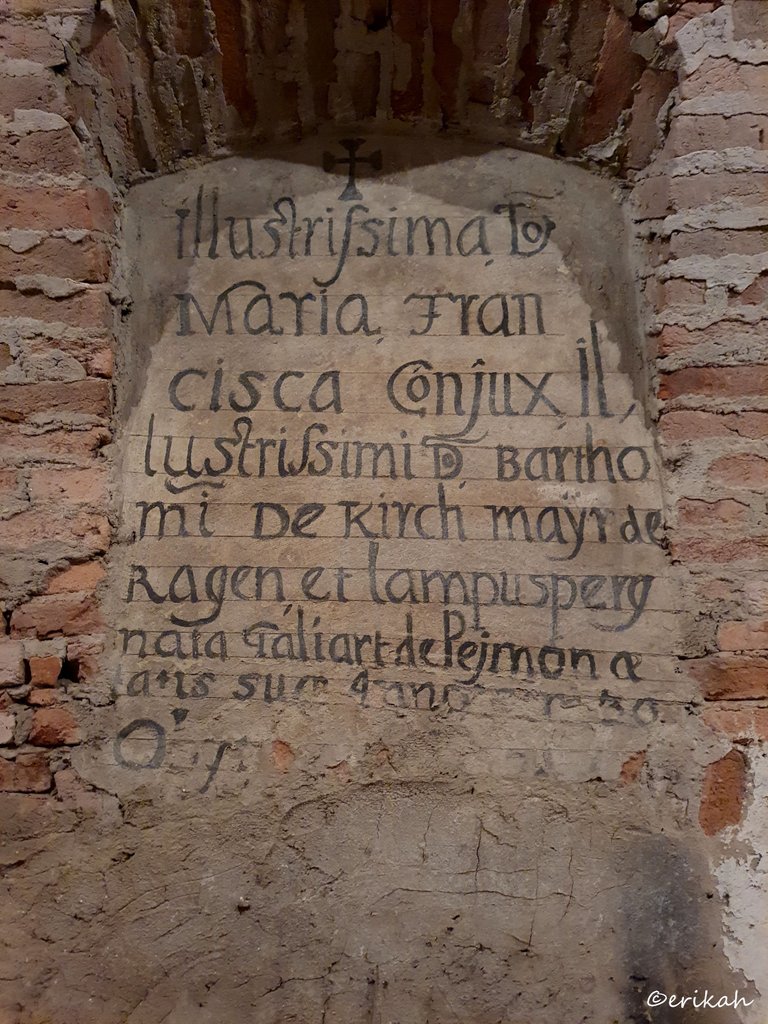 Illustrissima, D
Maria, Fran
cisca Conjux, Il,
lustrissimi D, Bartho
mi De Kirch maÿr de
Ragen, et Lampusperg
nata Galiart de Pejmon æ
tatis suæ
©erikah